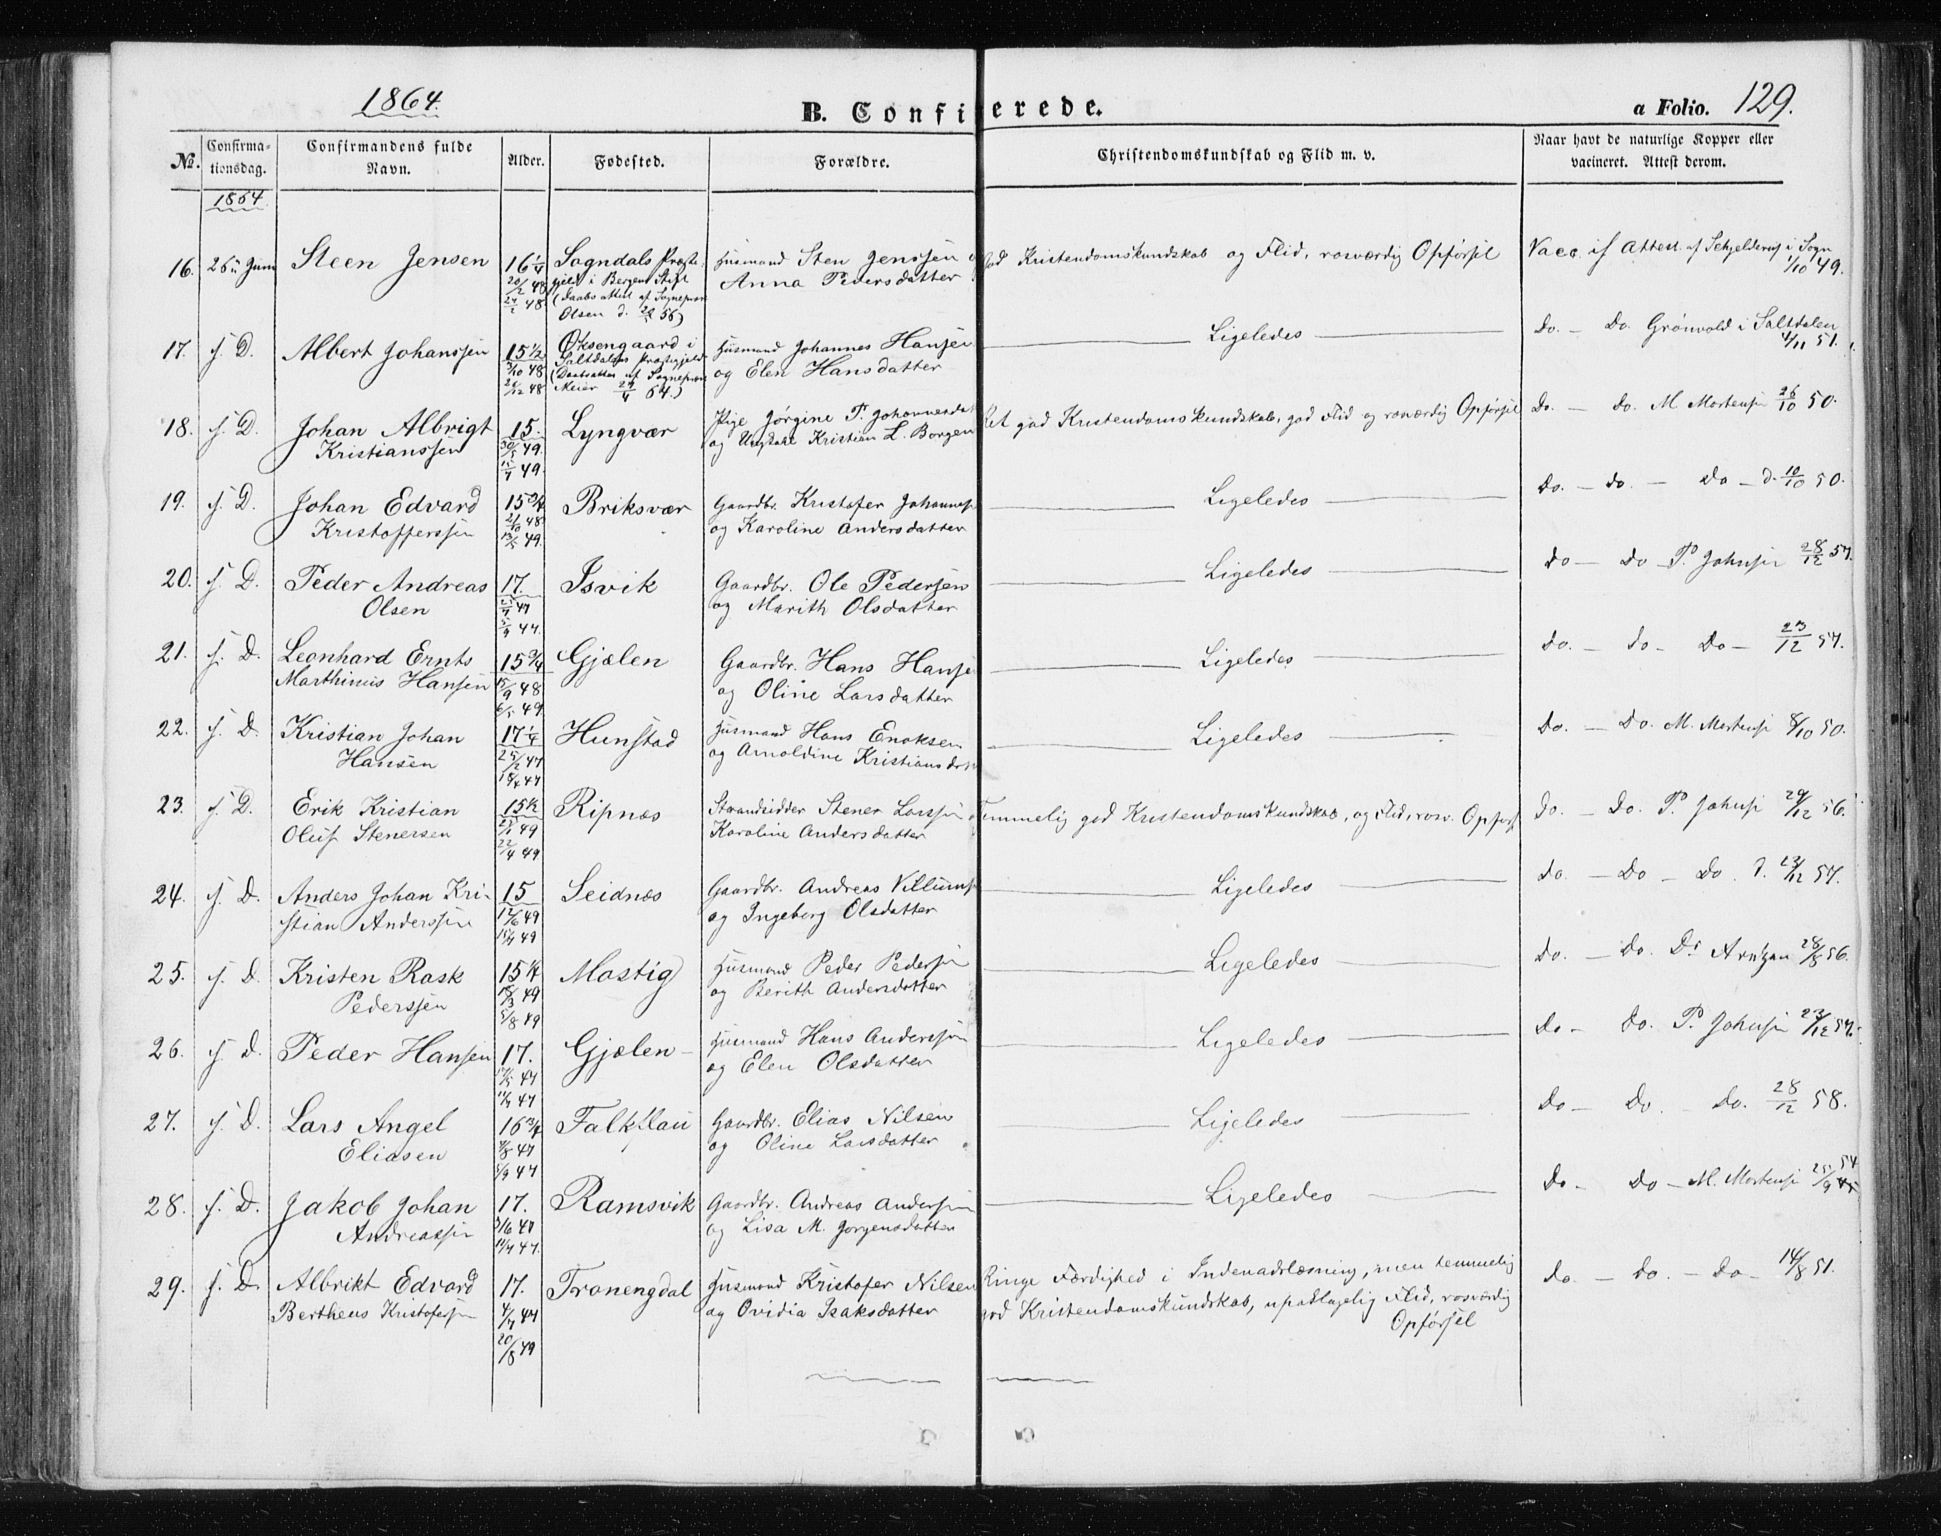 1864.
B. Confirmerede.
a Folio. 129.
No.
Confirma-
tionsdag.
Confirmandens fulde
Navn.
Alder.
Fødested.
Forældre.
Christendomskundskab og Flid m. v.
Naar havt de naturlige Kopper eller
vacineret. Attest derom.
1864.
16. 26 Juni Steen Jensen 16 1/4 Sogndals Præste- Husmand Sten Jenssen og God Kristendomskundskab og Flid, rosværdig Opførsel Vacc. if Attest af Schjelderup i Sogn
20/2 48 gjeld i Bergens Stift Anna Pedersdatter 1/10 49.
48 (Daabsattest af Sognepræst
Olsen d. 56)
17. s. D. Albert Johanssen 15 1/2 Oksengaard i Husmand Johannes Hansen Ligeledes Do. — Do. Grönvold i Saltdalen
/10 48 Saltdalens Præstegjeld og Elen Hansdatter 4/11 51.
26/12 48 (Daabsattest af Sognepræst
Meier 24/4 64.)
18. s. D. Johan Albrigt 15. Lyngvær Pige Jörgine P. Johannesdat Ret god Kristendomskundskab, god Flid og rosværdig Opførsel Do. — Do. M. Mortensen 26/10 50.
Kristianssen 30/5 49. og Ungkarl Kristian L. Borgen
49.
19. s. D. Johan Edvard 15 3/4 Briksvær Gaardbr. Kristofer Johannes Ligeledes Do. — do. — Do — d. 10/10 50.
Kristofferssen 21/10 48 og Karoline Andersdatter
13/5 49.
20. s. D. Peder Andreas 17. Isvik Gaardbr. Ole Pedersen Ligeledes Do — Do P. Johnsen 28/12 57.
Olsen 47 og Marith Olsdatter
5/9 47.
21. s. D. Leonhard Ernts 15 3/4 Gjælen Gaardbr. Hans Hansen Ligeledes Do. — Do — Do — 23/12 57.
Marthinus Hansen 15/9 48 og Oline Larsdatter
6/5 49.
22. s. D. Kristian Johan 17 1/4 Hunstad Husmand Hans Enoksen Ligeledes Do. — Do. M. Mortensen 8/10 50.
Hansen 25/2 47 og Arnoldine Kristiansdat
18/4 47
23. s. D. Erik Kristian 15 1/2 Ripnæs Strandsidder Stener Larssen Temmelig god Kristendomskundskab, og Flid, rosv. Opførs Do. — Do. P. Johnsen 29/12 56.
Oluf Stenersen 49 Karoline Andersdatter
22/4 49
24. s. D. Anders Johan Kri- 15 Seidnæs Gaardbr. Andreas Villums Ligeledes Do. — Do — Do. d. 23/12 57.
stian Anderssen 12/6 49 og Ingeborg Olsdatter
15/7 49
25. s. D. Kristen Rask 15 1/4 Mostig Husmand Peder Pedersen Ligeledes Do. — Do. Dr Arntzen 28/8 56.
Pederssen 18/3 49 og Berith Andersdatter
5/8 49
26. s. D. Peder Hansen 17. Gjælen Husmand Hans Anderssen Ligeledes Do — Do. P. Johnsen 23/12 57.
47 og Elen Olsdatter
47
27. s. D. Lars Angel 16 3/4 Falkflau Gaardbr. Elias Nilsen Ligeledes Do — Do. — Do. 28/12 58.
Eliasen 47 og Oline Larsdatter
5/9 47
28. s. D. Jakob Johan 17. Ramsvik Gaardbr. Andreas Andersen Ligeledes Do — Do — M. Mortensen 25/9 54
Andreassen 3/6 47 og Lisa M. Jorgensdatter
11/7 47.
29. s. D. Albrikt Edvard 17. Tranengdal Husmand Kristofer Nilsen Ringe Færdighed i Indenadslæsning, men temmelig Do. — Do. — Do — 14/8 51.
Bertheus Kristofersen 4/7 47 og Ovidia Isaksdatter god Kristendomskundskab, upaaklagelig Flid, rosværdig
20/8 49 Opførsel